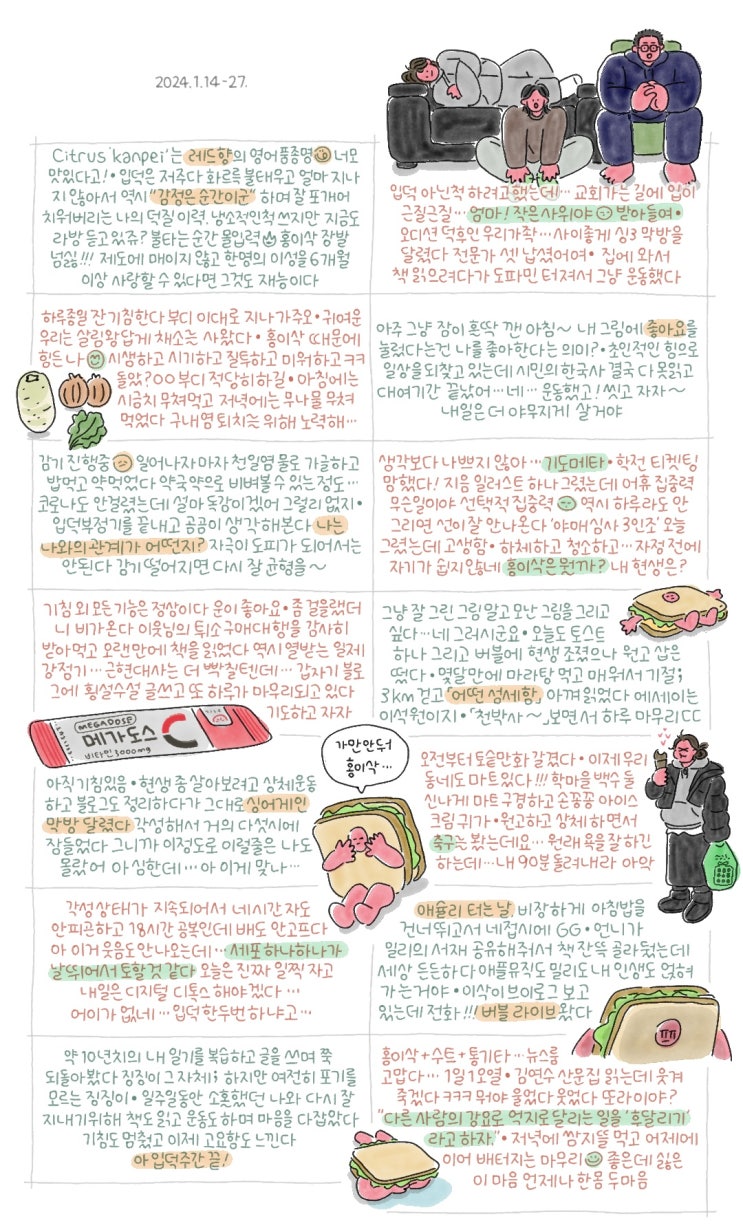 2024.1.14-27.
Citrus 'kanpei'는 레드향의 영어품종명 너모
맛있다고! • 입덕은 저주다 화르륵 불태우고 얼마 지나
지 않아서 역시 "감정은 순간이군" 하며 잘 포개어
치워버리는 나의 덕질 이력. 냉소적인척 쓰지만 지금도
라방 듣고 있쥬? 불타는 순간 몰입력 홍이삭 장발
넘실!!! 제도에 매이지 않고 한명의 이성을 6개월
이상 사랑할 수 있다면 그것도 재능이다
입덕 아닌척 하려고 했는데… 교회가는 길에 입이
근질근질… 엄마! 작은 사위야 받아들여 •
오디션 덕후인 우리가족… 사이좋게 싱3 막방을
달렸다 전문가 셋 납셨어여 • 집에 와서
책 읽으려다가 도파민 터져서 그냥 운동했다
하루종일 잔기침한다 부디 이대로 지나가주오 • 귀여운
우리는 살림왕답게 채소는 사왔다 • 홍이삭 때문에
힘든 나 시생하고 시기하고 질투하고 미워하고 ㅋㅋ
돌았?00 부디 적당히하길 • 아침에는
시금치 무쳐먹고 저녁에는 무나물 무쳐
먹었다 구내염 퇴치를 위해 노력해…
아주 그냥 잠이 혼딱 깬 아침~ 내 그림에 좋아요를
눌렀다는건 나를 좋아한다는 의미? • 초인적인 힘으로
일상을 되찾고 있는데 시민의 한국사 결국 다 못읽고
대여기간 끝났어… 네… 운동했고! 씻고 자자~
내일은 더 야무지게 살거야
감기 진행중 일어나자마자 천일염 물로 가글하고
밥먹고 약먹었다 약국약으로 비벼볼 수 있는 정도…
코로나도 안걸렸는데 설마 독감이겠어 그럴리 없지 •
입덕부정기를 끝내고 곰곰이 생각해본다 나는
나와의 관계가 어떤지? 자극이 도피가 되어서는
안된다 감기 떨어지면 다시 잘 균형을~
생각보다 나쁘지 않아… 기도메타 • 학전 티켓팅
망했다! 지음 일러스트 하나 그렸는데 어휴 집중력
무슨일이야 선택적 집중력 역시 하루라도 안
그리면 선이 잘 안나온다 '야매심사 3인조' 오늘
그렸는데 고생함 • 하체하고 청소하고… 자정 전에
자기가 쉽지 않네 홍이삭은 뭔까? 내 현생은?
기침 외 모든 기능은 정상이다 운이 좋아요 • 좀 걸을랬더
니 비가 온다 이웃님의 퇴소 구매대행을 감사히
받아먹고 오랜만에 책을 읽었다 역시 열받는 일제
강점기… 근현대사는 더 빡칠텐데… 갑자기 블로
그에 횡설수설 글쓰고 또 하루가 마무리되고 있다
기도하고 자자
그냥 잘 그린 그림 말고 모난 그림을 그리고
싶다… 네 그러시군요 • 오늘도 토스트
하나 그리고 버블에 현생 조졌으나 원고 삽은
떴다 • 몇달만에 마라탕 먹고 매워서 기절;
3km 걷고 「어떤 섬세함」 아껴 읽었다 에세이는
이석원이지 • 「천박사~」 보면서 하루 마무리 ㄷㄷ
MEGADOSE
메가도스
비타민 3000mg
가만안둬
홍이삭…
아직 기침있음 • 현생 좀 살아보려고 상체운동
하고 블로그도 정리하다가 그대로 싱어게인
막방 달렸다 각성해서 거의 다섯시에
잠들었다 그니까 이정도로 이럴줄은 나도
몰랐어 아 심한데… 아 이게 맞나…
오전부터 토슬만화 갈겼다 • 이제 우리
동네도 마트 있다!!! 학마을 백수들
신나게 마트 구경하고 손꽁꽁 아이스
크림 귀가 • 원고하고 상체 하면서
축구는 봤는데요… 원래 욕을 잘 하긴
하는데… 내 90분 돌려내라 아악
각성상태가 지속되어서 네시간 자도
안피곤하고 18시간 공복인데 배도 안고프다
아 이거 웃음도 안나오는데… 세포 하나하나가
날뛰어서 토할것 같다 오늘은 진짜 일찍 자고
내일은 디지털 디톡스 해야겠다…
어이가 없네… 입덕 한두번 하냐고…
애슐리 터는 날, 비장하게 아침밥을
건너뛰고서 네접시에 GG • 언니가
밀리의 서재 공유해줘서 책 잔뜩 골라뒀는데
세상 든든하다 애플뮤직도 밀리도 내 인생도 얹혀
가는거야 • 이삭이 브이로그 보고
있는데 전화!!! 버블 라이브 왔다
약 10년치의 내 일기를 복습하고 글을 쓰며 쭉
되돌아봤다 징징이 그 자체; 하지만 여전히 포기를
모르는 징징이 • 일주일동안 소홀했던 나와 다시 잘
지내기위해 책도 읽고 운동도 하며 마음을 다잡았다
기침도 멈췄고 이제 고요함도 느낀다
아 입덕주간 끝!
홍이삭+수트+통기타… 뉴스룸
고맙다… 1일 1오열 • 김연수 산문집 읽는데 웃겨
죽겠다 ㅋㅋㅋ 뭐야 울었다 웃었다 또라이야?
"다른 사람의 강요로 억지로 달리는 일을 '후달리기'
라고 하자." • 저녁에 쌈지뜰 먹고 어제에
이어 배터지는 마무리 좋은데 싫은
이 마음 언제나 한몸 두마음